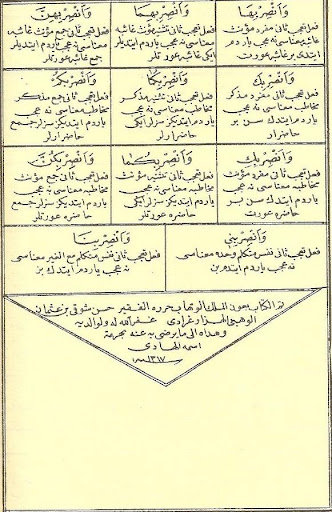 وَانْصِرْ بِهَا
فعل تعجب ثانى مفرد مؤنث
غائبه معناسى نه عجب ياردم
ايتدى بر غائبه عورت
وَانْصِرْ بِهِمَا
فعل تعجب ثانى تثنيه مؤنث غائبه
معناسى نه عجب ياردم ايتديلر
ايكى غائبه عورتلر
وَانْصِرْ بِهِنَّ
فعل تعجب ثانى جمع مؤنث غائبه
معناسى نه عجب ياردم ايتديلر
جمع غائبه عورتلر
وَانْصِرْ بِكَ
فعل تعجب ثانى مفرد مذكر
مخاطب معناسى نه عجب
ياردم ايتدك سن بر
حاضر ار
وَانْصِرْ بِكُمَا
فعل تعجب ثانى تثنيه مذكر
مخاطب معناسى نه عجب
ياردم ايتديكز سزلر ايكى
حاضر ارلر
وَانْصِرْ بِكُمْ
فعل تعجب ثانى جمع مذكر
مخاطب معناسى نه عجب
ياردم ايتديكز سزلر جمع
حاضر ارلر
وَانْصِرْ بِكِ
فعل تعجب ثانى مفرد مؤنث
مخاطبه معناسى نه عجب
ياردم ايتدك سن بر
حاضره عورت
وَانْصِرْ بِكُمَا
فعل تعجب ثانى تثنيه مؤنث
مخاطبه معناسى نه عجب
ياردم ايتديكز سزلر ايكى
حاضره عورتلر
وَانْصِرْ بِكُنَّ
فعل تعجب ثانى جمع مؤنث
مخاطبه معناسى نه عجب
ياردم ايتديكز سزلر جمع
حاضره عورتلر
وَانْصِرْ بِي
فعل تعجب ثانى نفس متكلم وحده معناسى
نه عجب ياردم ايتدم بن
وَانْصِرْ بِنَا
فعل تعجب ثانى نفس متكلم مع الغير معناسى
نه عجب ياردم ايتدك بز
تم الكتاب بعون الملك الوهاب حرره الفقير حسن شوقى بن عثمان
الوهبى غفر الله له ولوالديه
وهداه الى ما يرضى به عنه بحرمة
اسمه الهادى
سنه ١٣١٧